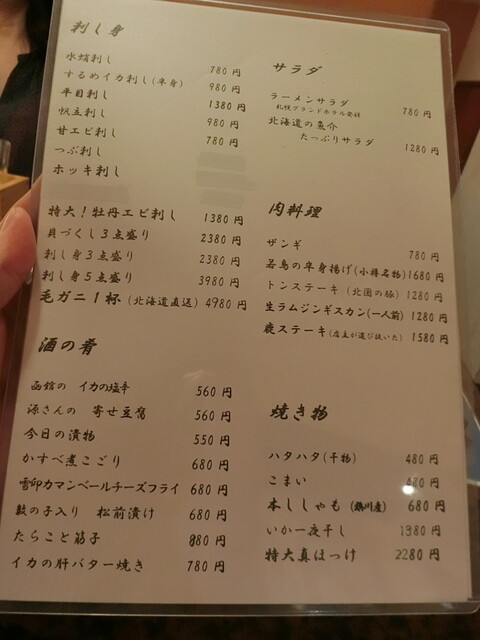 刺し身
水蛸刺し 780円
するめイカ刺し(半身) 980円
平目刺し 1380円
帆立刺し 980円
甘エビ刺し 780円
つぶ刺し
ホッキ刺し
特大！牡丹エビ刺し 1380円
貝づくし3点盛り 2380円
刺し身3点盛り 2380円
刺し身5点盛り 3980円
毛ガニ1杯(北海道直送) 4980円
酒の肴
函館の イカの塩辛 560円
源さんの 寄せ豆腐 560円
今日の漬物 550円
かすべ煮こごり 680円
雪印カマンベールチーズフライ 680円
数の子入り 松前漬け 680円
たらこと筋子 880円
イカの肝バター焼き 780円
サラダ
ラーメンサラダ 780円
札幌グランドホテル発祥
北海道の魚介
たっぷりサラダ 1280円
肉料理
ザンギ 780円
若鳥の半身揚げ(小樽名物) 1680円
トンステーキ(北国の豚) 1280円
生ラムジンギスカン(一人前) 1280円
鹿ステーキ(店主が選び抜いた) 1580円
焼き物
ハタハタ(干物) 480円
こまい 480円
本ししゃも(鵡川産) 680円
いか一夜干し 1380円
特大真ほっけ 2280円